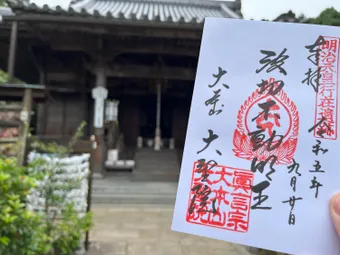 明治天皇行在遺跡
奉拝
令和五年
九月廿日
波切不動明王
大本山
大聖院
真言宗
大本山